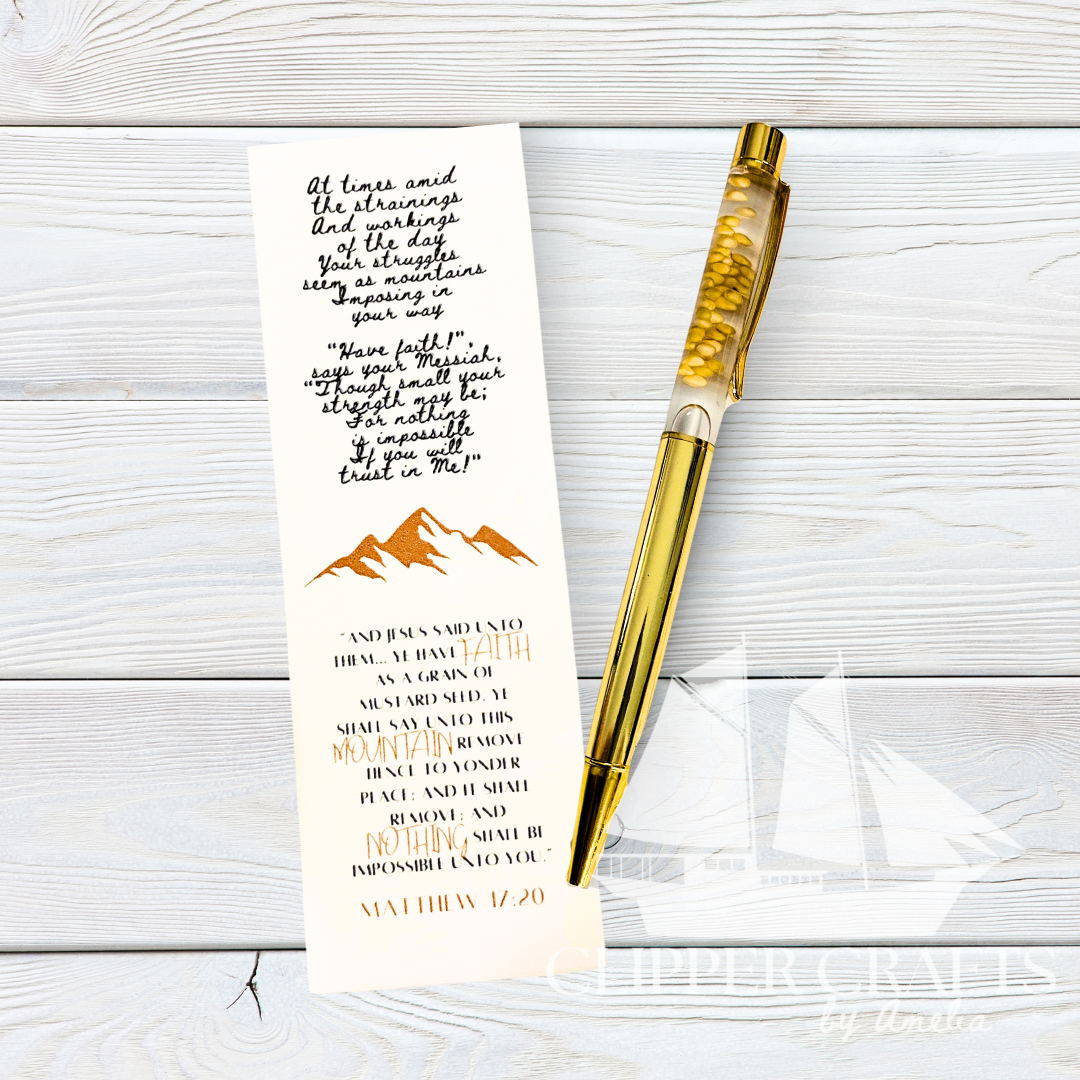 At times amid
the strainings
And workings
of the day
Your struggles
seem as mountains
Imposing in
your way
"Have faith!",
says your Messiah,
"Though small your
strength may be;
For nothing
is impossible
If you will
trust in Me!"
"AND JESUS SAID UNTO
THEM... YE HAVE FAITH
AS A GRAIN OF
MUSTARD SEED, YE
SHALL SAY UNTO THIS
MOUNTAIN REMOVE
HENCE TO YONDER
PLACE; AND IT SHALL
REMOVE; AND
NOTHING SHALL BE
IMPOSSIBLE UNTO YOU."
MATTHEW 17:20
CLIPPER CRAFTS
by Amelia